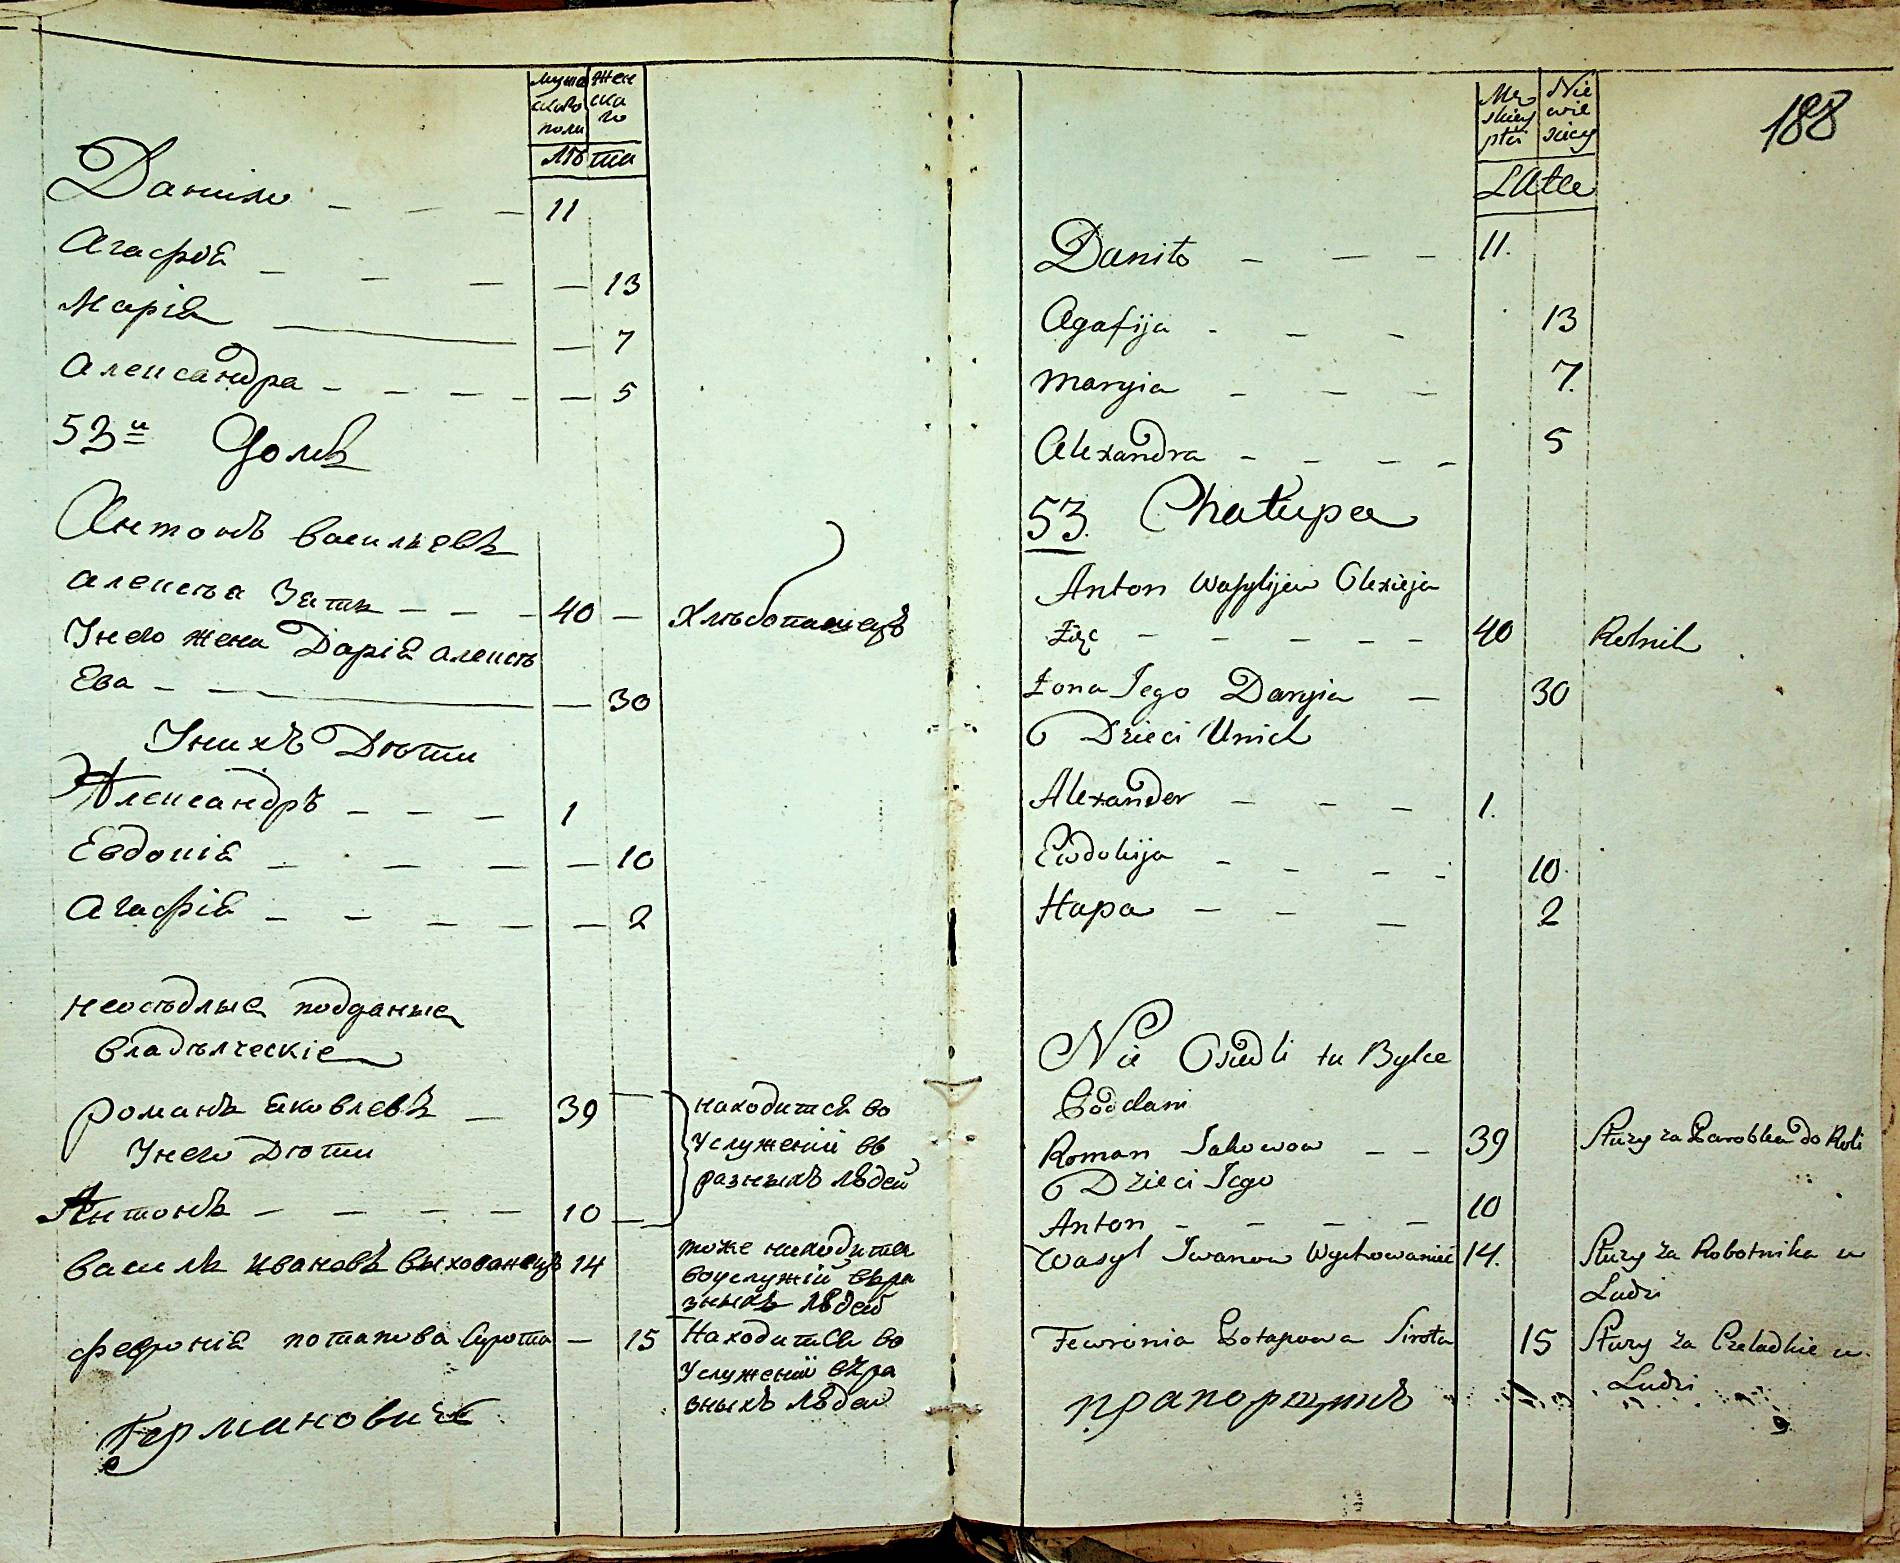 мужс Жен
скаго ска
полu го
лѣта
Данило - - - 11
Агафіѣ - - - - 13
Маріѣ - 7
Александра - - - - - 5
53й Домъ
Антонъ васильевъ
алексѣа Зать - - - 40 - Хлѣбопашецъ
Унего жена Даріѣ алексѣ
Ева - - - 30
Унихъ Дѣти
Александръ - - - 1
Евдокіѣ - - - - - 10
Агафіѣ - - - - - 2
неосѣдлые подданые
владѣлческіе
романъ ѣковлевъ - 39
Унего Дѣти
Антонъ - - - - 10
находитсѣ во
Услуженій въ
разныхъ людей
василь ивановъ выхованецъ 14
тоже находитса
воуслужій въра
зныхъ людей
февроніѣ потапова Сирота - 15
Находитсѣ во
Услуженій въра
зныхъ людей
Германовичь
188
Mę Nie
skiey wie
płci sciey
LAta
Daniło - - - 11.
Agafija - - - 13
Maryia - - - 7.
Alexandra - - - - 5
53. Chałupa
Anton Wasylijew Olexieja
Zięc - - - - - 40 Rolnik
Żona Jego Daryia - 30
Dzieci Unich
Alexander - - - 1.
Ewdokija - - - - 10.
Hapa - - - 2
Nie Osiedli tu Bylce
Poddani
Roman Jakowow - - 39 Służy za Parobka do Roli
Dzieci Jego
Anton - - - - 10
Wasyl Iwanow Wychowaniec 14. Służy za Robotnika u
Ludzi
Fewronia Potapowa Sirota 15 Służy za Czeladkie u
Ludzi
прапорщикъ